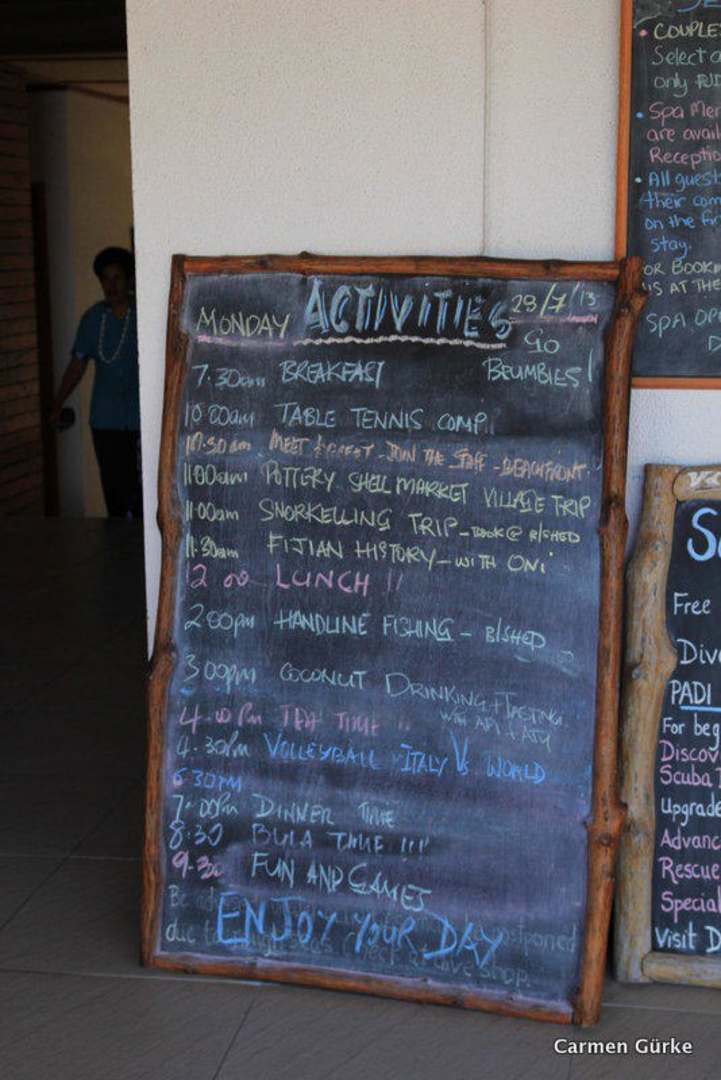 MONDAY ACTIVITIES 29/7/13
GO
7.30am BREAKFAST BRUMBIES!
10 00am TABLE TENNIS COMP.
10.30am MEET & GREET - JOIN THE STAFF - BEACHFRONT.
11 00am POTTERY SHELL MARKET VILLAGE TRIP
11 00am SNORKELLING TRIP - BOOK @ B/SHED
11.30am FIJIAN HISTORY - WITH ONI
12 00 LUNCH !!
2 00pm HANDLINE FISHING - B/SHED
3 00pm COCONUT DRINKING + TASTING
WITH API + ATU
4.00 Pm TEA TIME !!
4.30Pm VOLLEYBALL - ITALY Vs WORLD
6 30PM
7:00Pm DINNER TIME
8:30 BULA TIME !!!
9.30 FUN AND GAMES
ENJOY YOUR DAY
postponed
due
dive shop.
• COUPLE
Select
only
• Spa Me
are avail
Receptio
• All guest
their com
on the
stay.
OR BOOK
US AT THE
SPA OP
Free
Dive
PADI
For beg
Discov
Scuba
Upgrade
Advanc
Rescue
Special
Visit D
Carmen Gürke